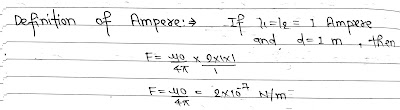 Definition of Ampere:→ If I₁=I₂ = 1 Ampere
and d=1 m, then
F = μ0/4π × 2×1×1/1
F = μ0/4π = 2×10⁻⁷ N/m